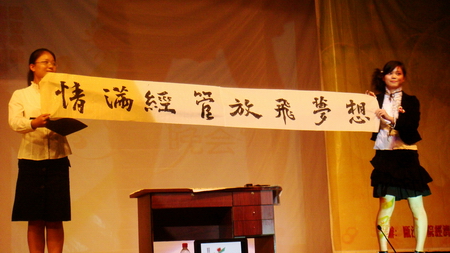 情滿經管放飛夢想
晚会